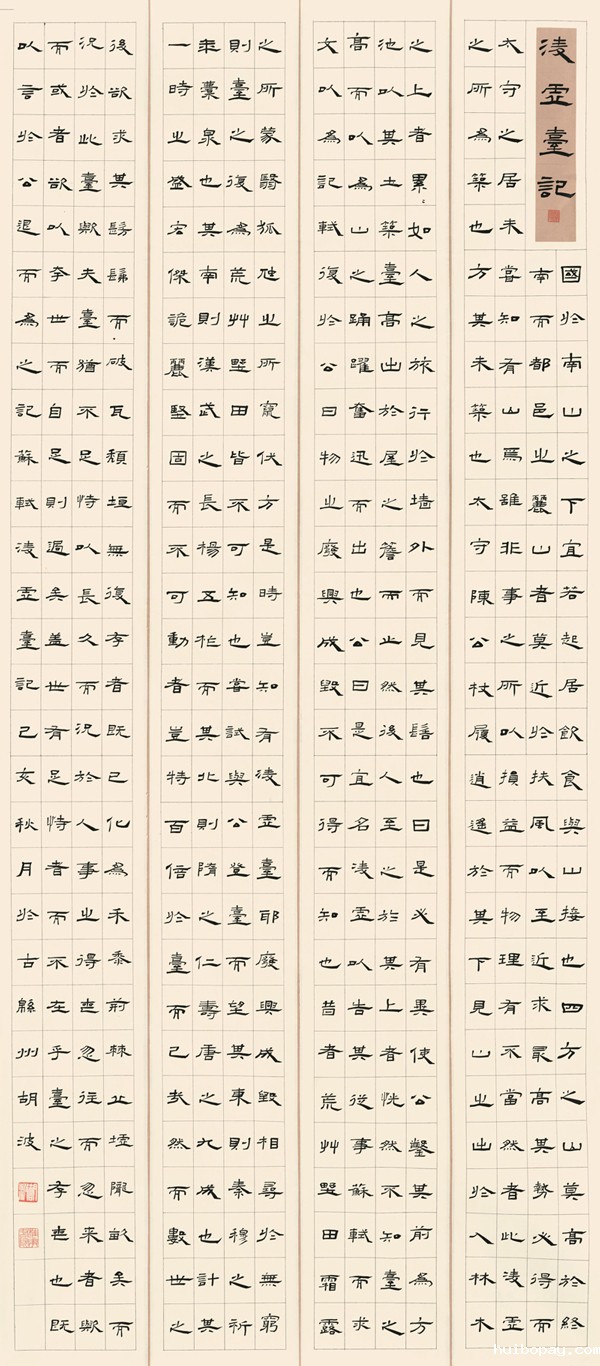 凌虛臺記
國於南山之下宜若起居飲食與山接也四方之山莫高於終
南而都邑之麗山者莫近於扶風以至近求最高其勢必得而
太守之居未嘗知有山焉雖非事之所以損益而物理有不當然者此凌虛
之所為築也方其未築也太守陳公杖履逍遙於其下見山之出於入林木
之上者累〻如人之旅行於墻外而見其髻也曰是必有異使公鑿其前為方
池以其土築臺高出於屋之簷而止然後人至之於其上者恍然不知臺之
高而以為山之踊躍奮迅而出也公曰是宜名凌虛以告其從事蘇軾而求
文以為記軾復於公曰物之廢興成毀不可得而知也昔者荒艸野田霜露
之所蒙翳狐虺之所竄伏方是時豈知有凌虛臺耶廢興成毀相尋於無窮
則臺之復為荒艸野田皆不可知也嘗試與公登臺而望其東則秦穆之祈
年橐泉也其南則漢武之長楊五柞而其北則隋之仁壽唐之九成也計其
一時之盛宏傑詭麗堅固而不可動者豈特百倍於臺而已哉然而數世之
後欲求其髣髴而破瓦頹垣無復存者既已化為禾黍荊棘丘墟隴畝矣而
況於此臺歟夫臺猶不足恃以長久而況於人事之得喪忽往而忽來者歟
而或者欲以夸世而自足則過矣蓋世有足恃者而不在乎臺之存亡也既
以言於公退而為之記蘇軾凌虛臺記己亥秋月於古緜州胡波
huibopay.com